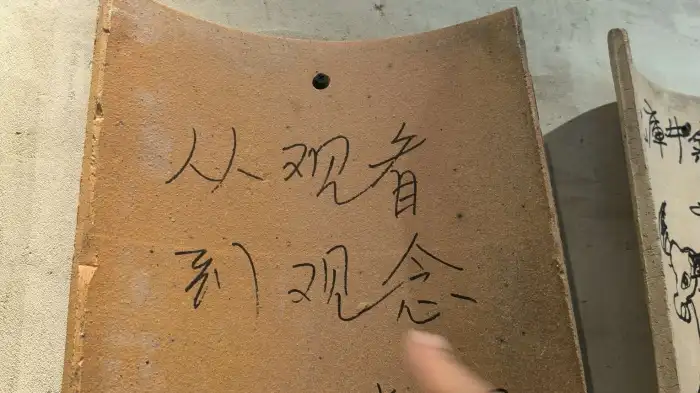 从观者
到观念